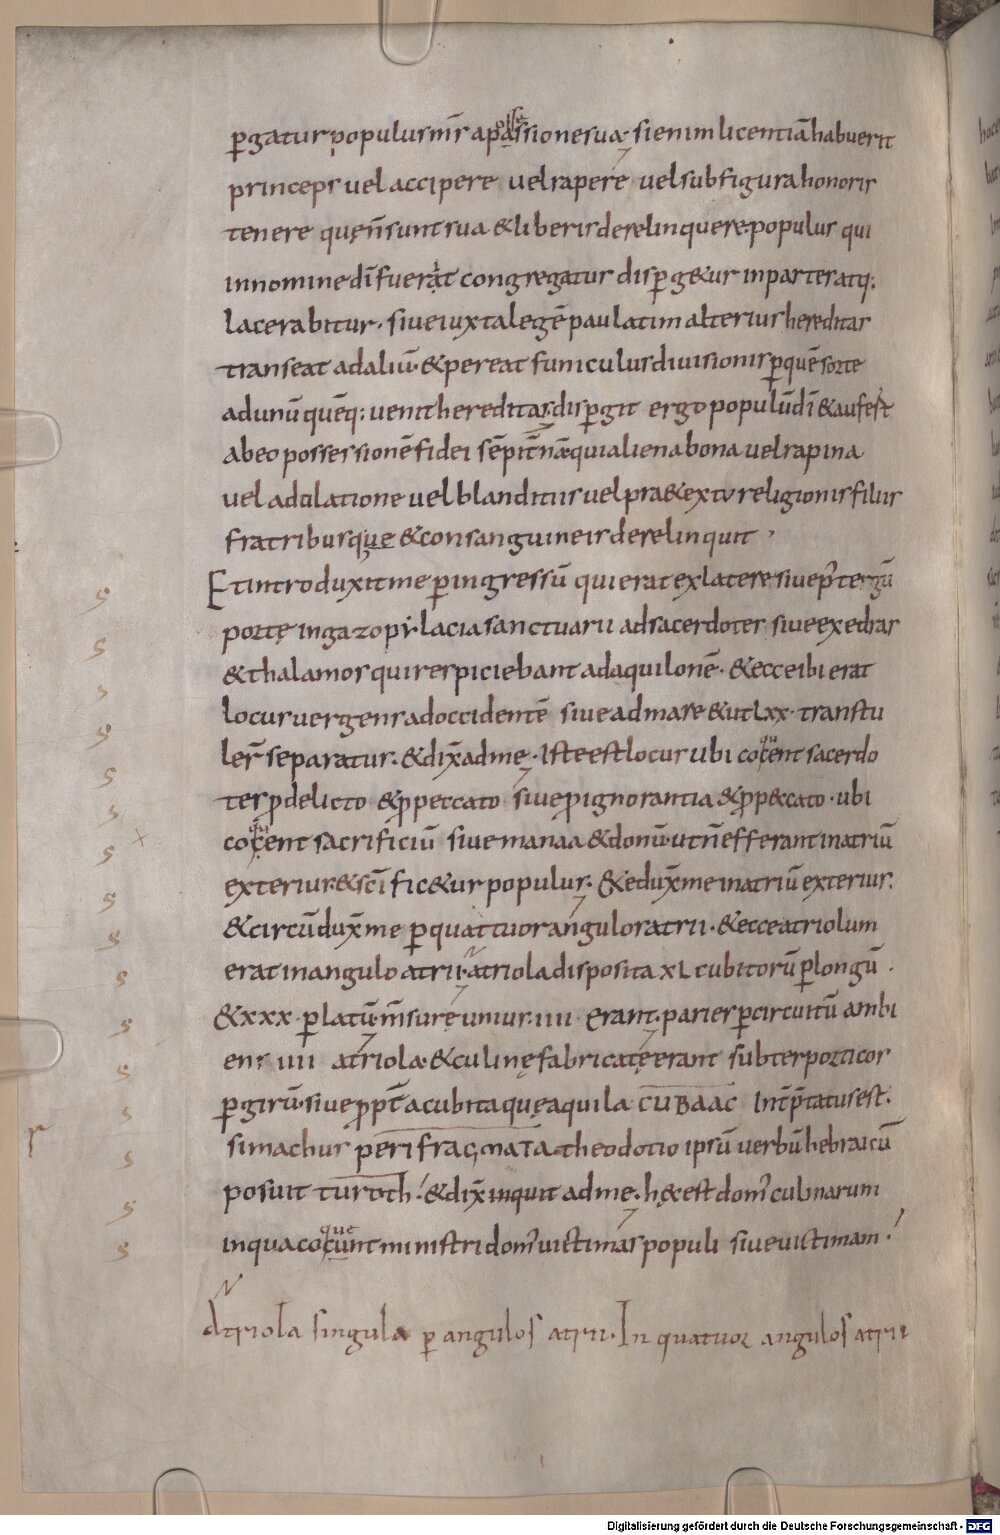 ꝑgatur populus mr̄s a passione sua. si enim licentiā habuerit
osse
princeps vel accipere vel rapere vel sub figura honoris
tenere quę n̄ sunt sua & liberis derelinquere. populus qui
in nomine dī fuerat congregatur disꝑg&ur in partes atq;
lacerabitur. sive iuxta legē paulatim alterius hereditas
transeat ad aliū. & pereat funiculus divisionis ꝑ quē sorte
ad unū quēq; venit hereditas. disꝑgit ergo populū dī & aufert
ab eo possessionē fidei sēpit̄næ qui aliena bona vel rapina
vel adulatione vel blanditiis vel præ&extu religionis filiis
fratribusque & consanguineis derelinquit
Et introduxit me ꝑ ingressū qui erat ex latere sive p᷒ tergū
portę in gazopylacia sanctuarii ad sacerdotes sive exedras
& thalamos qui respiciebant ad aquilonē. & ecce ibi erat
locus vergens ad occidentē sive ad mare & ut Lxx. transtu
ler̄ separatus. & dix̄ ad me. Iste est locus ubi cocent sacerdo
qu
tes ꝓ delicto & ꝓ peccato sive ꝓ ignorantia & ꝓ p&cato. ubi
cocent sacrificiū sive manaa & donū. ut n̄ efferant in atriū
qu
exterius. & sc̄ific&ur populus. & edux̄ me in atriū exterius.
& circūdux̄ me ꝑ quattuor angulos atrii. & ecce atriolum
erat in angulo atrii. atriola disposita xL cubitorū ꝑ longū.
& xxx. ꝑ latū. m̄surę unius. iiii erant. paries ꝑ circuitū ambi
ens iiii atriola. & culinę fabricatę erant subter porticos
ꝑ girū. sive ꝓpt̄ a cubita quę aquila CUBAAC Int̄p̄tatus est.
simachus PERIFRAGMATA theodotio ipsū verbū hebraicū
posuit turoth. & dix̄ inquit ad me. hęc est dom᷒ culinarum
in qua cocunt ministri dom᷒ victimas populi sive victimam
que
Atriola singula ꝑ angulos atrii. In quatuor angulos atrii
Digitalisierung gefördert durch die Deutsche Forschungsgemeinschaft - DFG